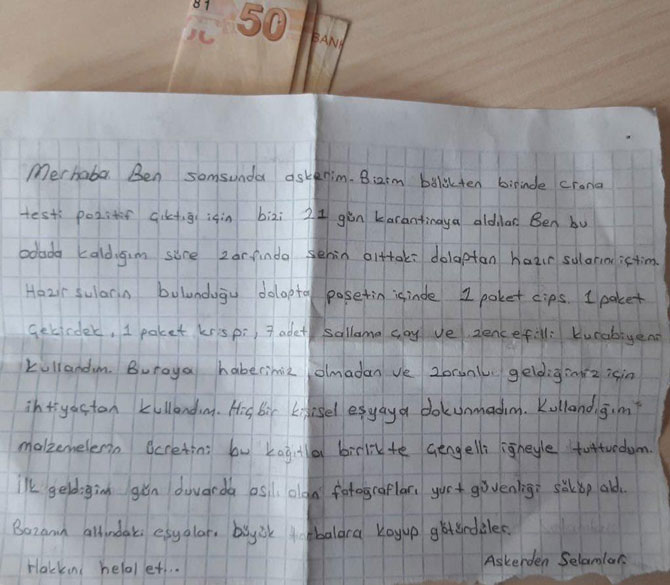 81
50
BANK
Merhaba Ben samsunda askerim. Bizim bölükten birinde crona
testi pozitif çıktığı için bizi 21 gün karantinaya aldılar. Ben bu
odada kaldığım süre zarfında senin alttaki dolaptan hazır sularını içtim.
Hazır suların bulunduğu dolapta poşetin içinde 1 paket cips. 1 paket
çekirdek, 1 paket krispi, 7 adet sallama çay ve zencefilli kurabiyeni
kullandım. Buraya haberimiz olmadan ve zorunlu geldiğimiz için
ihtiyaçtan kullandım. Hiç bir kişisel eşyaya dokunmadım. Kullandığım
malzemelerin ücretini bu kağıtla birlikte çengelli iğneyle tutturdum.
İlk geldiğim gün duvarda asılı olan fotoğrafları yurt güvenliği söküp aldı.
Bazanın altındaki eşyaları büyük torbalara koyup götürdüler.
Hakkını helal et...
Askerden Selamlar.